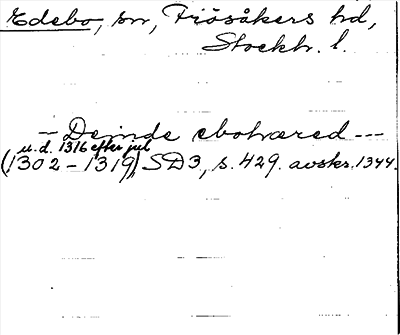 Edebo, sn, Frösåkers hd,
Stockh. l.
— Deinde ebohæred ---
u.d. 1316 efter jul
(1302 – 1319) SD3, s. 429. avskr. 1344.